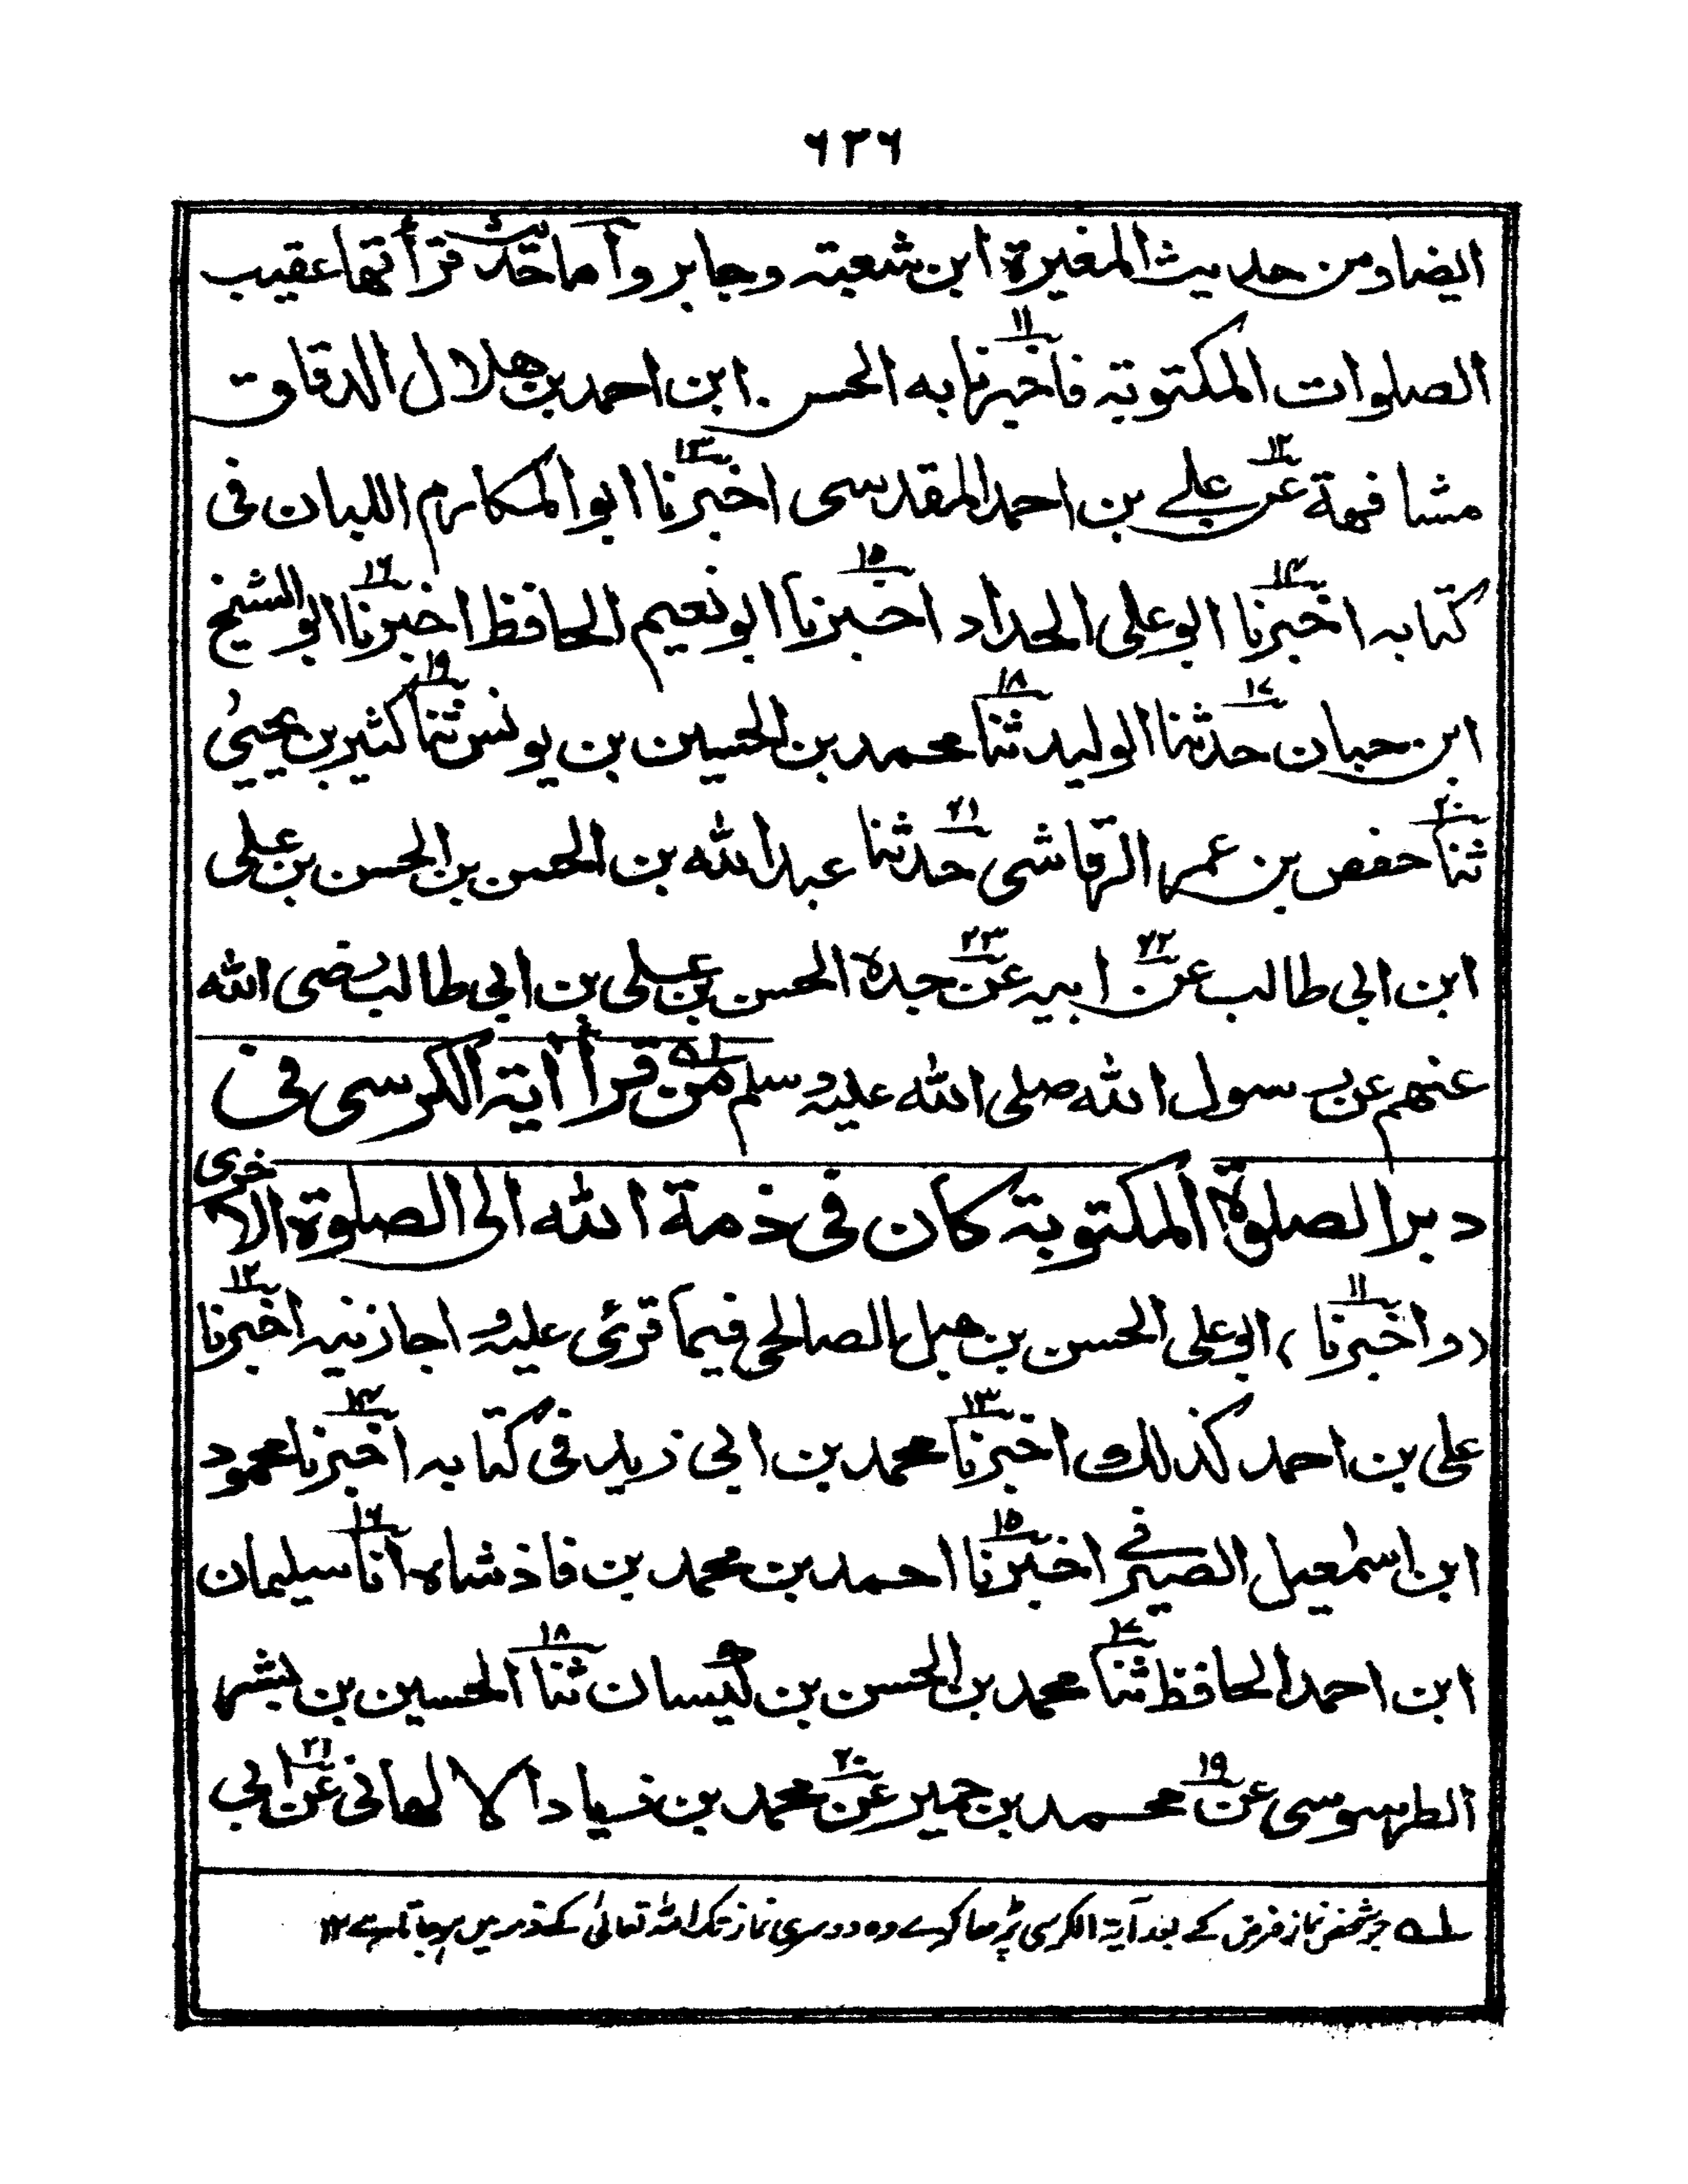 ٦٣٦
ايضا ومن حديث المغيرة ابن شعبته وجابر وآما حديث قرأتها عقيب
الصلوات المكتوبته فاخبرنا به الحسن ابن احمد بن هلال الدقاق
مشافهة عن علے بن احمد المقدسى اخبرنا ابو المكارم اللبان فى
كتابه اخبرنا ابو على الحداد اخبرنا ابو نعيم الحافظ اخبرنا ابو الشيخ
ابن حبان حدثنا الوليد ثنا محمد بن الحسين بن يونس ثنا كثير بن يحيىٰ
ثنا حفص بن عمر الرقاشى حدثنا عبد الله بن الحسن بن الحسن بن على
ابن ابى طالب عن ابيه عن جده الحسن بن على بن ابي طالب رضى الله
عنهم عن رسول الله صلى الله عليه وسلم من قرأ اٰية الكرسى فى
دبر الصلوة المكتوبته كان فى ذمة الله الى الصلوة الاخرى
(واخبرنا) ابو على الحسن بن هبل الصالحى فيما قرئى عليه واجازنيه اخبرنا
على بن احمد كذلك اخبرنا محمد بن ابى زيد فى كتابه اخبرنا محمود
ابن اسمٰعيل الصيرفے اخبرنا احمد بن محمد بن فاذشاه انا سليمان
ابن احمد الحافظ ثنا محمد بن الحسن بن كيسان ثنا الحسين بن بشر
الطرسوسى عن محمد بن حمير عن محمد بن زياد الالهانى عن ابى
لـه جو شخص نماز فرض کے بعد آیۃ الکرسی پڑھا کرے وہ دوسری نماز تک اللہ تعالیٰ کے ذمہ میں ہو جاتا ہے ۱۲